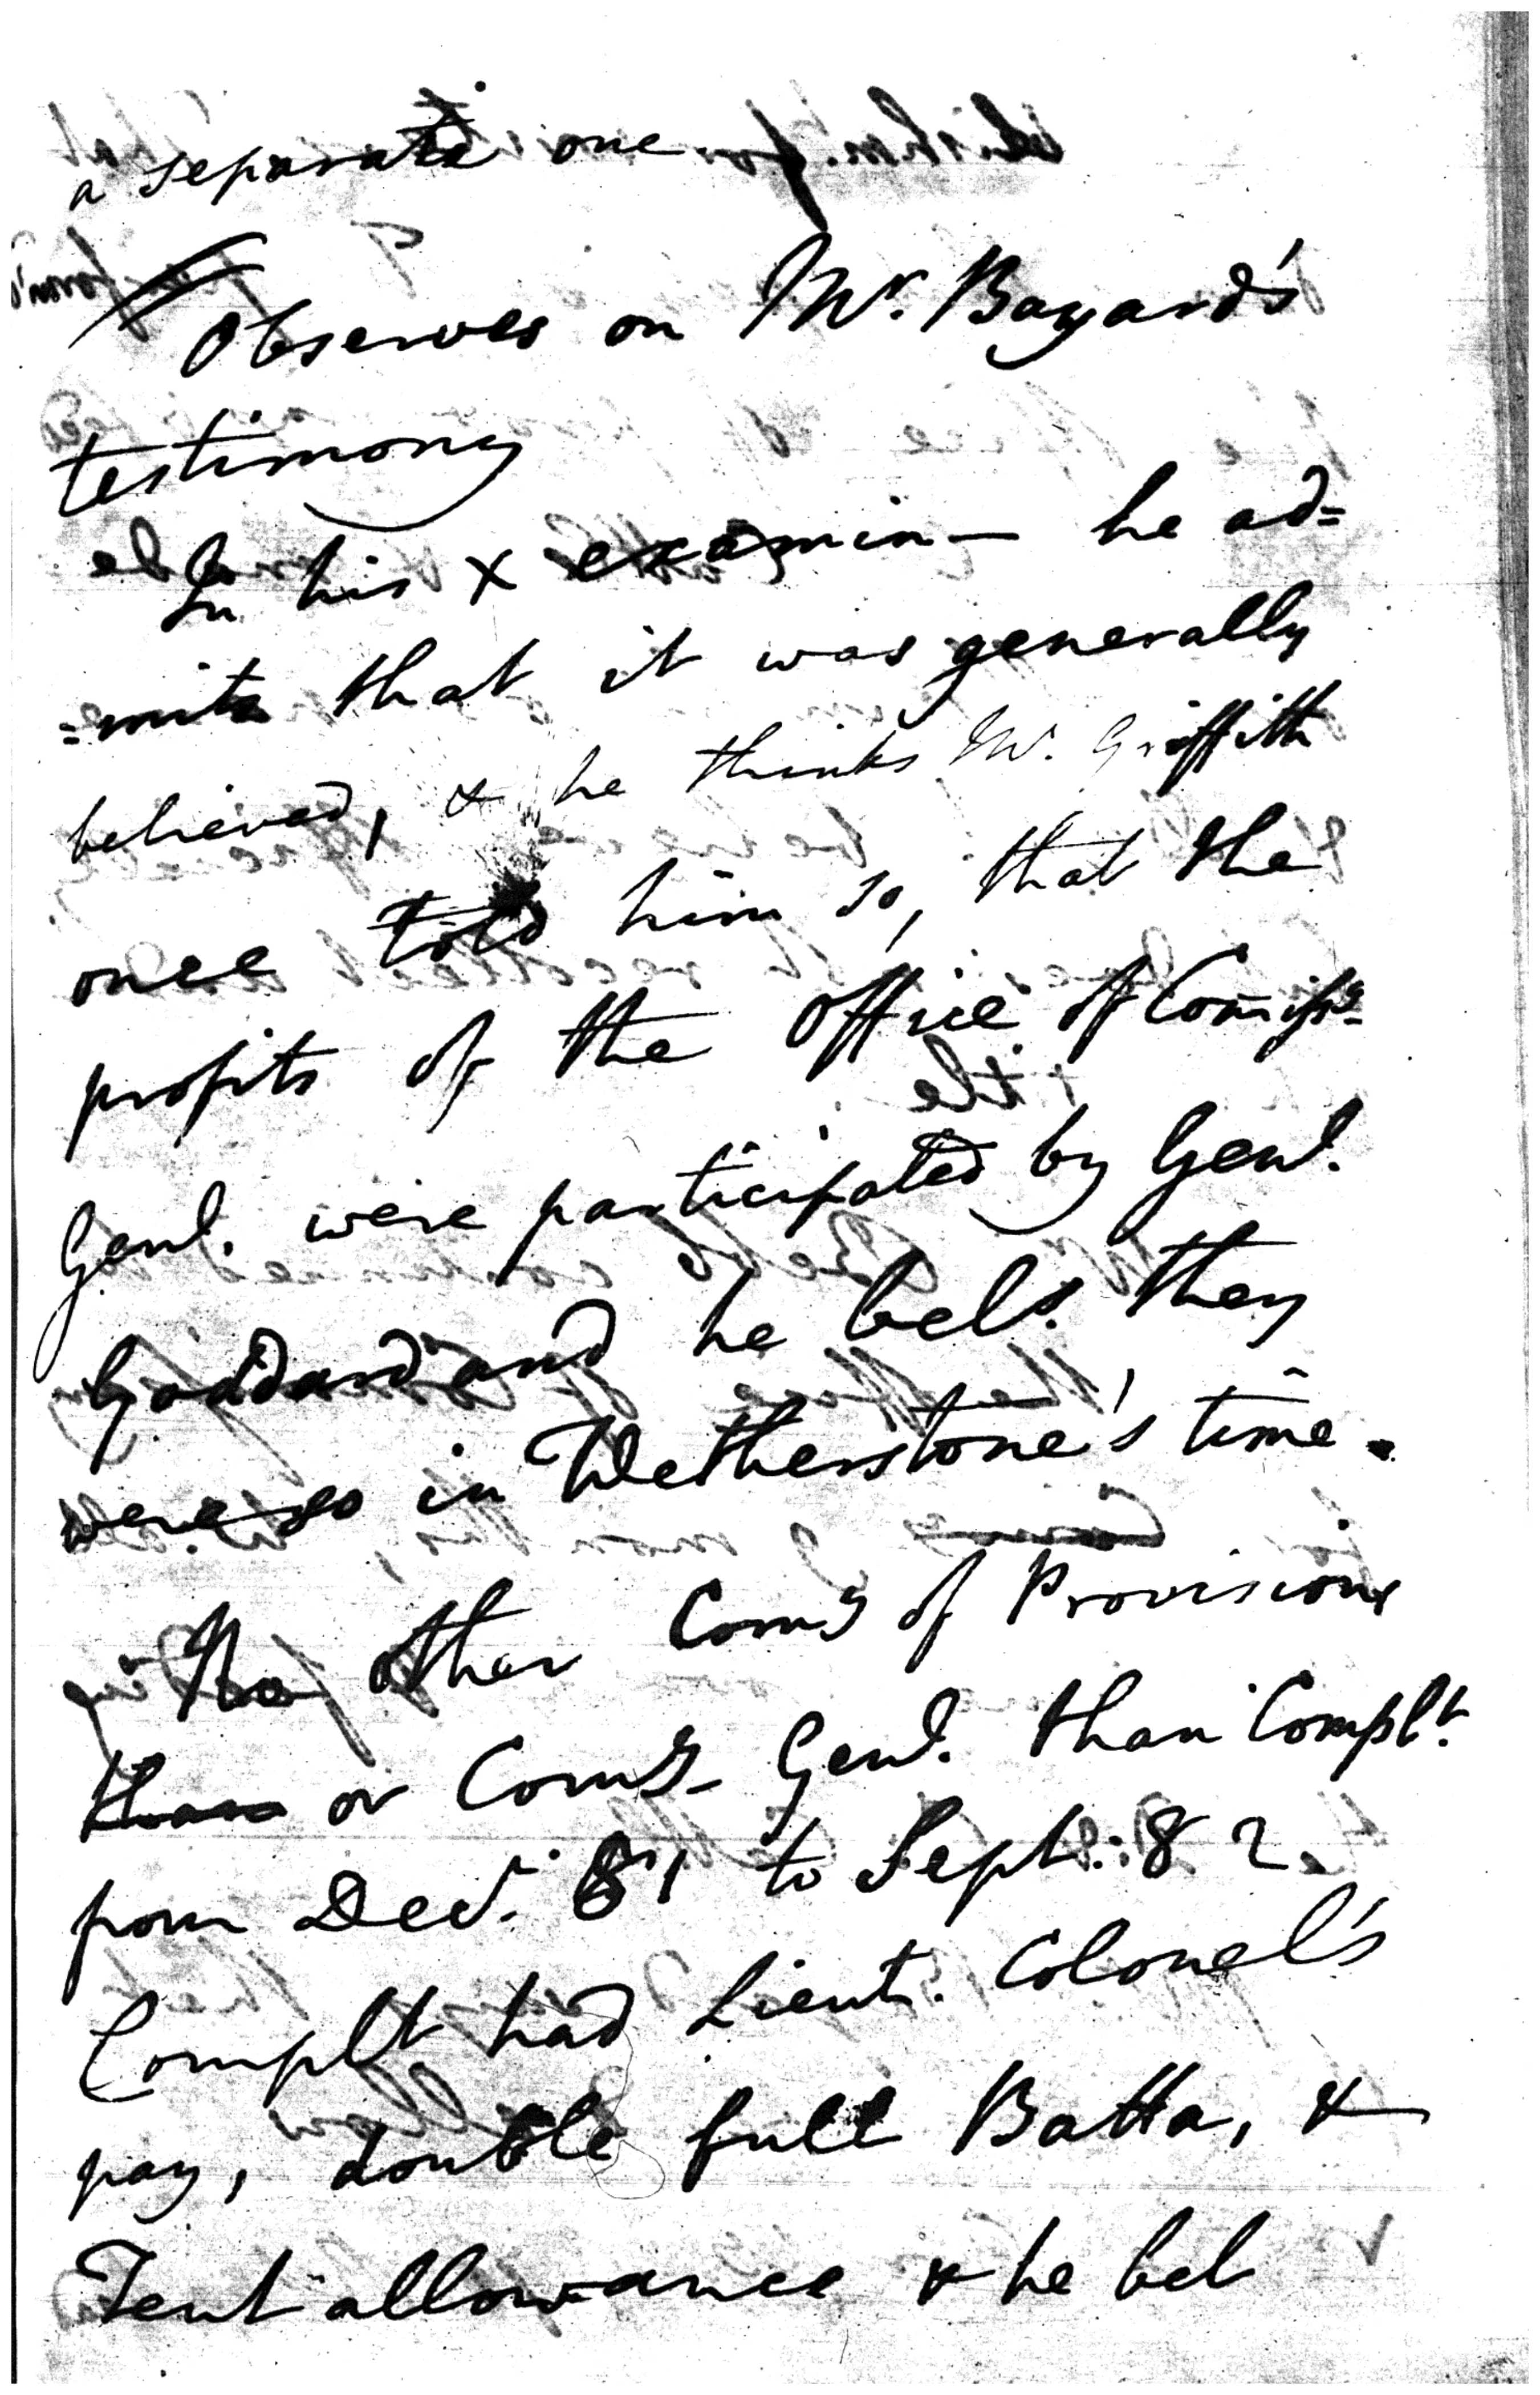 a separate one.
Observes on Mr. Bayard's
testimony
In his x examin— he ad=
=mits that it was generally
believed, & he thinks Mr. Griffith
once told him so, that the
profits of the Office of Comissy
Genl. were participated by Genl.
Goddard and he bels. they
were so in Wetherstone's time.
No other Comy of Provisions
than or Comy- Genl. than Complt.
from Decr. 81 to Sept: 82.
Complt had Lieut. Colonel's
pay, double full Batta, &
Tent allowance & he bel